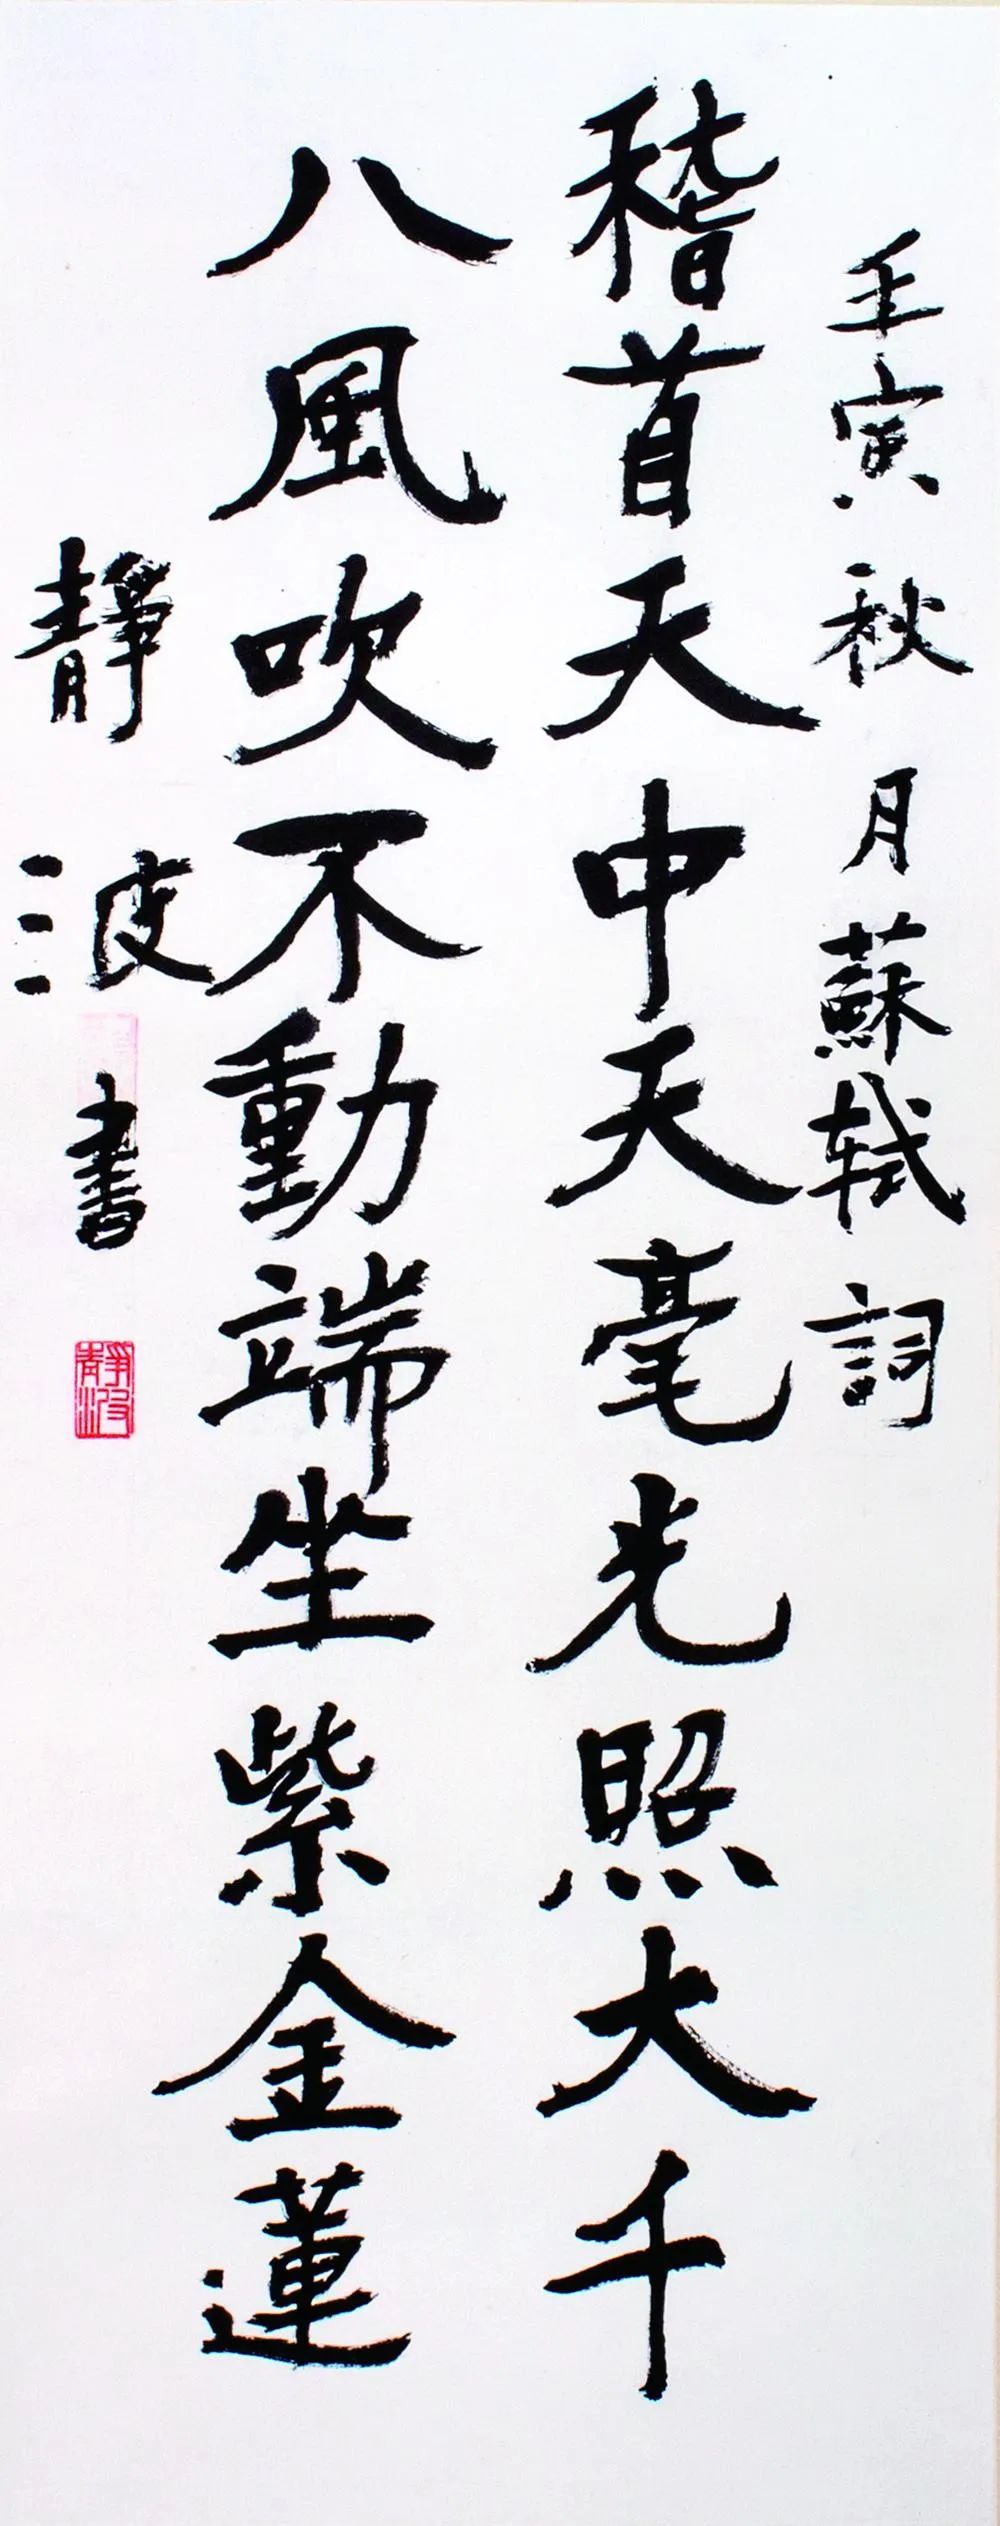 壬寅秋月蘇轼詞
稽首天中天毫光照大千
八風吹不動端坐紫金蓮
靜波書
靜波